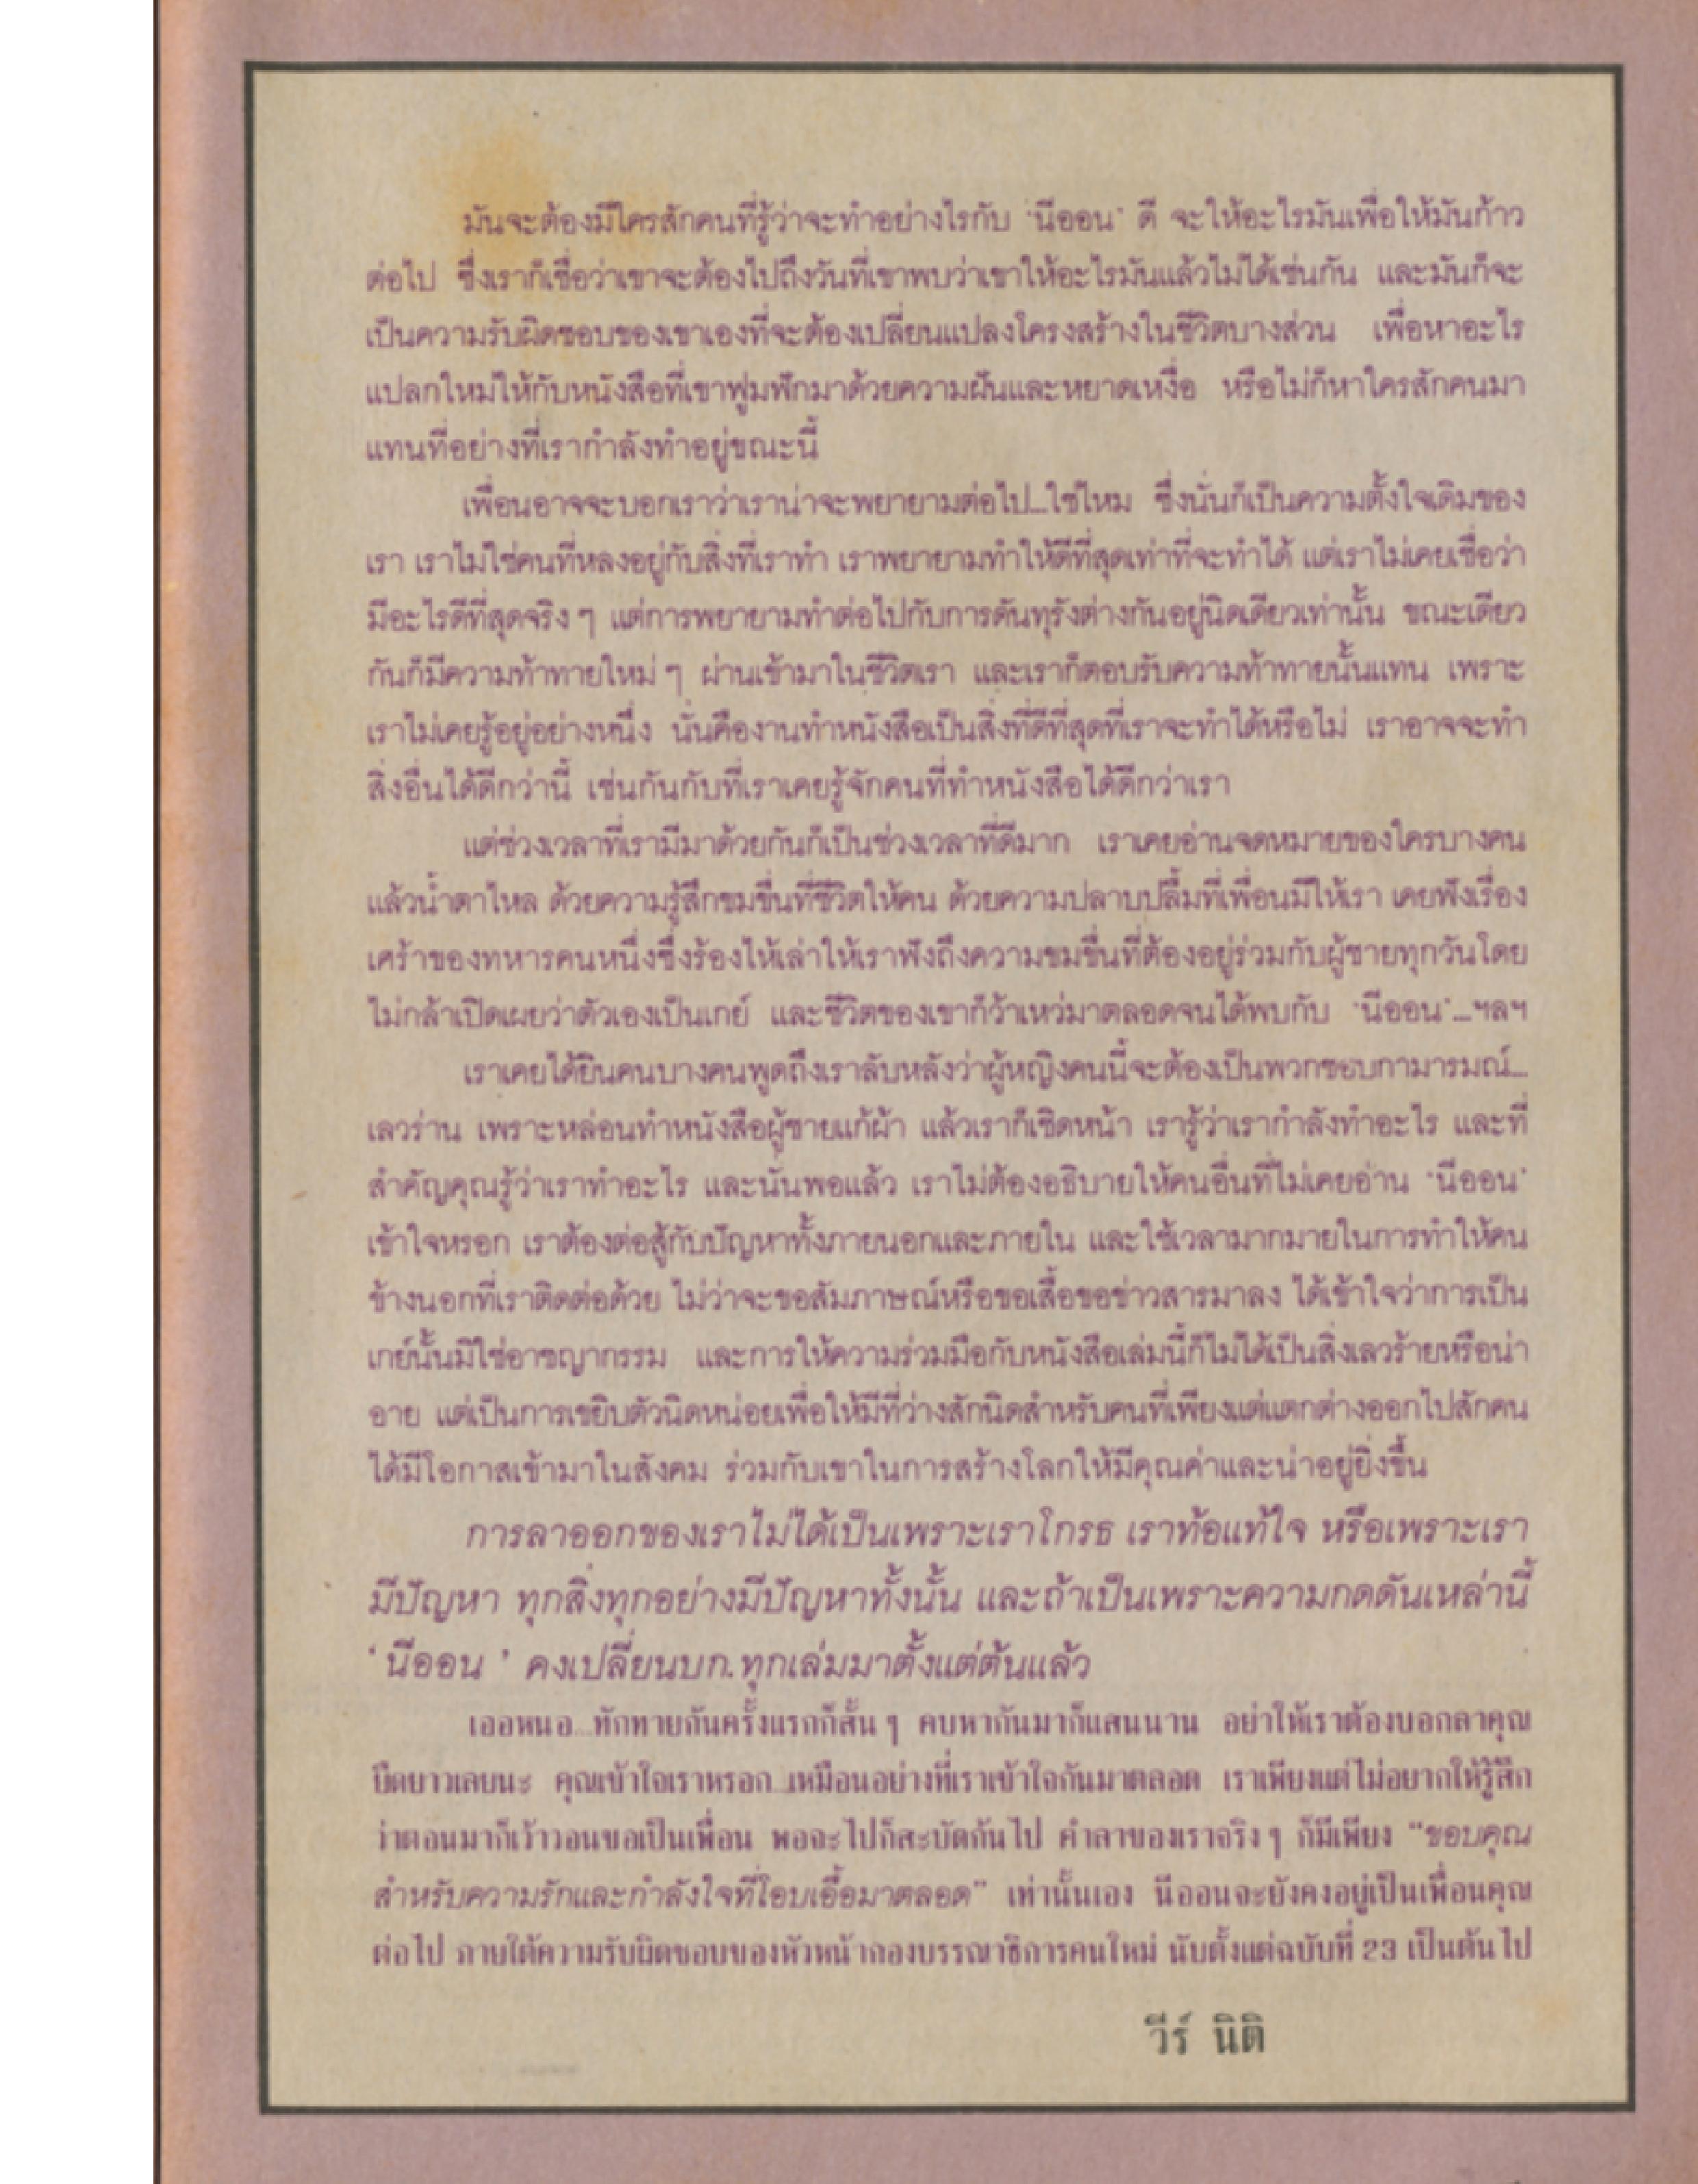 มันจะต้องมีใครสักคนที่รู้ว่าจะทำอย่างไรกับ 'นีออน' ดี จะให้อะไรมันเพื่อให้มันก้าว
ต่อไป ซึ่งเราก็เชื่อว่าเขาจะต้องไปถึงวันที่เขาพบว่าเขาให้อะไรมันแล้วไม่ได้เช่นกัน และมันก็จะ
เป็นความรับผิดชอบของเขาเองที่จะต้องเปลี่ยนแปลงโครงสร้างในชีวิตบางส่วน เพื่อหาอะไร
แปลกใหม่ให้กับหนังสือที่เขาฟูมฟักมาด้วยความฝันและหยาดเหงื่อ หรือไม่ก็หาใครสักคนมา
แทนที่อย่างที่เรากำลังทำอยู่ขณะนี้
เพื่อนอาจจะบอกเราว่าเราน่าจะพยายามต่อไป...ใช่ไหม ซึ่งนั่นก็เป็นความตั้งใจเดิมของ
เรา เราไม่ใช่คนที่หลงอยู่กับสิ่งที่เราทำ เราพยายามทำให้ดีที่สุดเท่าที่จะทำได้ แต่เราไม่เคยเชื่อว่า
มีอะไรดีที่สุดจริง ๆ แต่การพยายามทำต่อไปกับการดันทุรังต่างกันอยู่นิดเดียวเท่านั้น ขณะเดียว
กันก็มีความท้าทายใหม่ ๆ ผ่านเข้ามาในชีวิตเรา และเราก็ตอบรับความท้าทายนั้นแทน เพราะ
เราไม่เคยรู้อยู่อย่างหนึ่ง นั่นคืองานทำหนังสือเป็นสิ่งที่ดีที่สุดที่เราจะทำได้หรือไม่ เราอาจจะทำ
สิ่งอื่นได้ดีกว่านี้ เช่นกันกับที่เราเคยรู้จักคนที่ทำหนังสือได้ดีกว่าเรา
แต่ช่วงเวลาที่เรามีมาด้วยกันก็เป็นช่วงเวลาที่ดีมาก เราเคยอ่านจดหมายของใครบางคน
แล้วน้ำตาไหล ด้วยความรู้สึกขมขื่นที่ชีวิตให้คน ด้วยความปลาบปลื้มที่เพื่อนมีให้เรา เคยฟังเรื่อง
เศร้าของทหารคนหนึ่งซึ่งร้องไห้เล่าให้เราฟังถึงความขมขื่นที่ต้องอยู่ร่วมกับผู้ชายทุกวันโดย
ไม่กล้าเปิดเผยว่าตัวเองเป็นเกย์ และชีวิตของเขาก็ว้าเหว่มาตลอดจนได้พบกับ 'นีออน'...ฯลฯ
เราเคยได้ยินคนบางคนพูดถึงเราลับหลังว่าผู้หญิงคนนี้จะต้องเป็นพวกชอบกามารมณ์...
เลวร่าน เพราะหล่อนทำหนังสือผู้ชายแก้ผ้า แล้วเราก็เชิดหน้า เรารู้ว่าเรากำลังทำอะไร และที่
สำคัญคุณรู้ว่าเราทำอะไร และนั่นพอแล้ว เราไม่ต้องอธิบายให้คนอื่นที่ไม่เคยอ่าน 'นีออน'
เข้าใจหรอก เราต้องต่อสู้กับปัญหาทั้งภายนอกและภายใน และใช้เวลามากมายในการทำให้คน
ข้างนอกที่เราติดต่อด้วย ไม่ว่าจะขอสัมภาษณ์หรือขอเสื้อขอข่าวสารมาลง ได้เข้าใจว่าการเป็น
เกย์นั้นมิใช่อาชญากรรม และการให้ความร่วมมือกับหนังสือเล่มนี้ก็ไม่ได้เป็นสิ่งเลวร้ายหรือน่า
อาย แต่เป็นการเขยิบตัวนิดหน่อยเพื่อให้มีที่ว่างสักนิดสำหรับคนที่เพียงแต่แตกต่างออกไปสักคน
ได้มีโอกาสเข้ามาในสังคม ร่วมกับเขาในการสร้างโลกให้มีคุณค่าและน่าอยู่ยิ่งขึ้น
การลาออกของเราไม่ได้เป็นเพราะเราโกรธ เราท้อแท้ใจ หรือเพราะเรา
มีปัญหา ทุกสิ่งทุกอย่างมีปัญหาทั้งนั้น และถ้าเป็นเพราะความกดดันเหล่านี้
'นีออน' คงเปลี่ยนบก.ทุกเล่มมาตั้งแต่ต้นแล้ว
เออหนอ...ทักทายกันครั้งแรกก็สั้น ๆ คบหากันมาก็แสนนาน อย่าให้เราต้องบอกลาคุณ
ยืดยาวเลยนะ คุณเข้าใจเราหรอก...เหมือนอย่างที่เราเข้าใจกันมาตลอด เราเพียงแต่ไม่อยากให้รู้สึก
ว่าตอนมาก็เว้าวอนขอเป็นเพื่อน พอจะไปก็สะบัดก้นไป คำลาของเราจริง ๆ ก็มีเพียง "ขอบคุณ
สำหรับความรักและกำลังใจที่โอบเอื้อมาตลอด" เท่านั้นเอง นีออนจะยังคงอยู่เป็นเพื่อนคุณ
ต่อไป ภายใต้ความรับผิดชอบของหัวหน้ากองบรรณาธิการคนใหม่ นับตั้งแต่ฉบับที่ 23 เป็นต้นไป
วีร์ นิติ